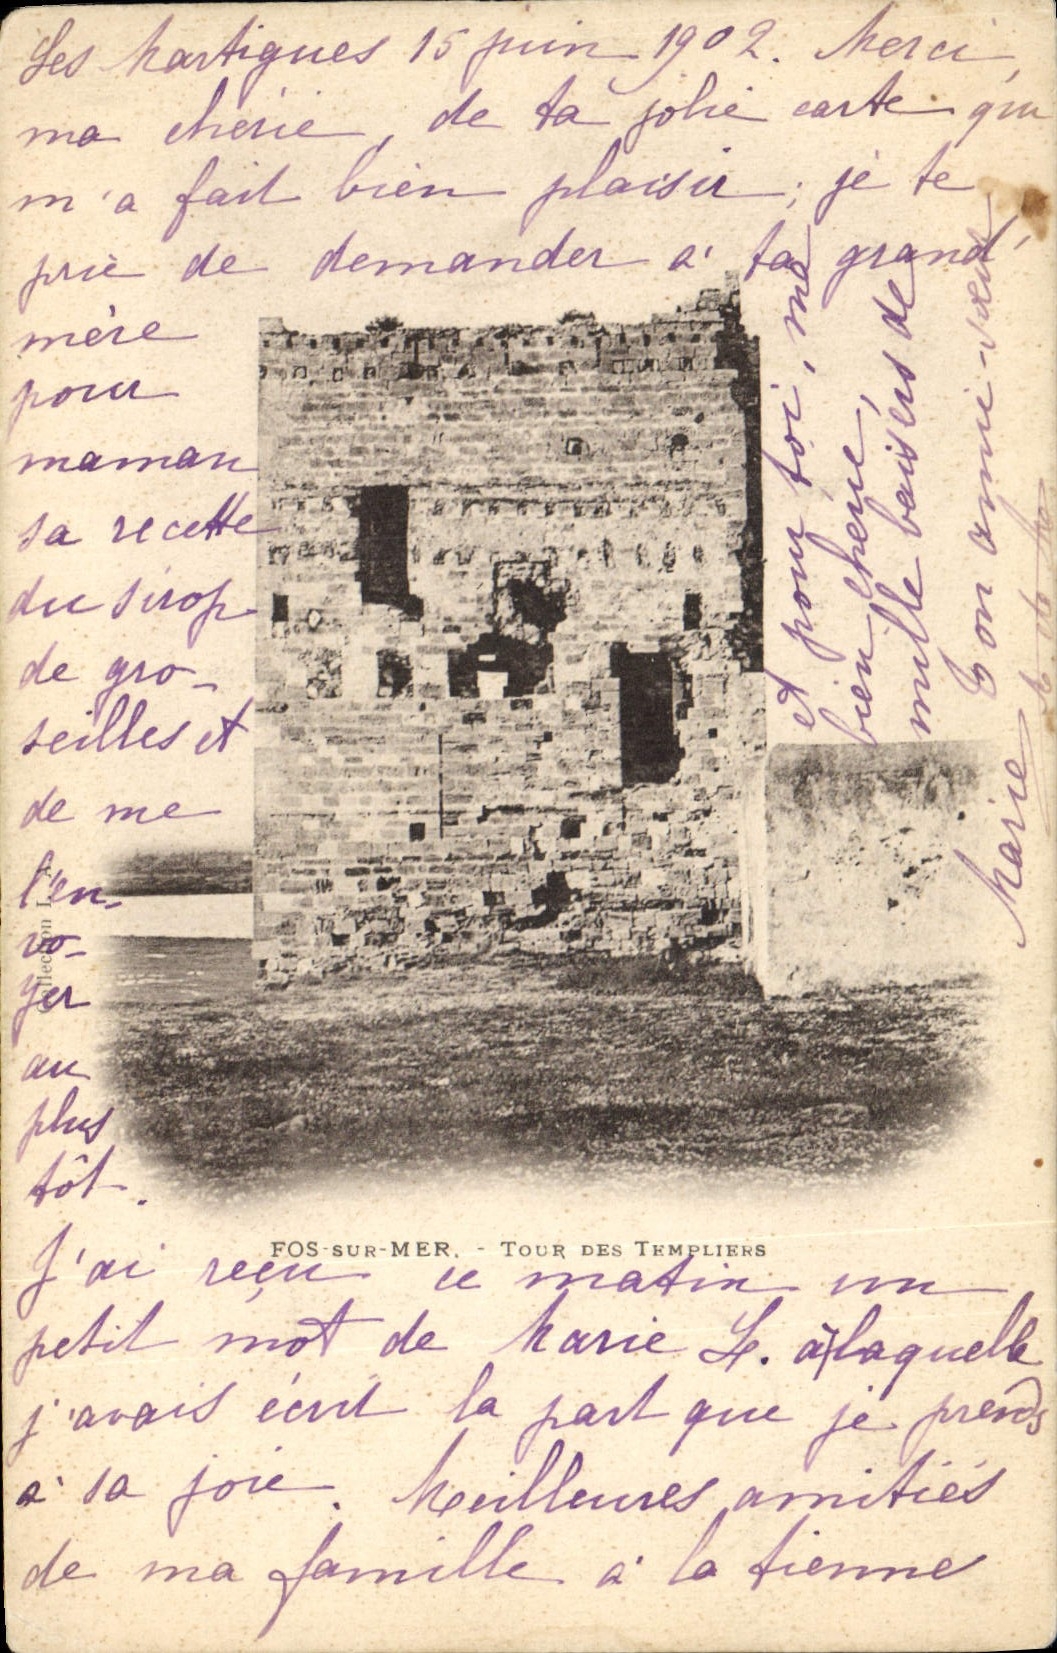 Les Martigues 15 juin 1902. Merci,
ma chérie, de ta jolie carte qui
m'a fait bien plaisir ; je te
prie de demander à ta grand'
mère
pour
maman
sa recette
du sirop
de gro-
seilles et
de me
l'en-
vo-
yer
au
plus
tôt.
J'ai reçu ce matin un
petit mot de Marie L. à laquelle
j'avais écrit la part que je prends
à sa joie. Meilleures amitiés
de ma famille à la tienne
et pour toi, ma
bien chérie,
mille baisers de
Ton amie-sœur
Marie
Collection L. A.
FOS-SUR-MER. - TOUR DES TEMPLIERS